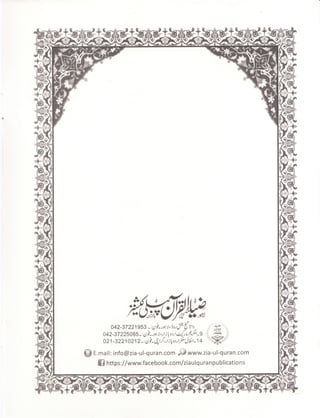 ضیاء القرآن پبلی کیشنز
داتا گنج بخش روڈ، لاہور۔ فون:۔ 042-37221953
9۔الکریم مارکیٹ، اردو بازار، لاہور۔ فون:۔ 042-37225085
14۔انفال سنٹر، اردو بازار، کراچی۔ فون:۔ 021-32210212
E.mail: info@zia-ul-quran.com www.zia-ul-quran.com
https://www.facebook.com/ziaulquranpublications